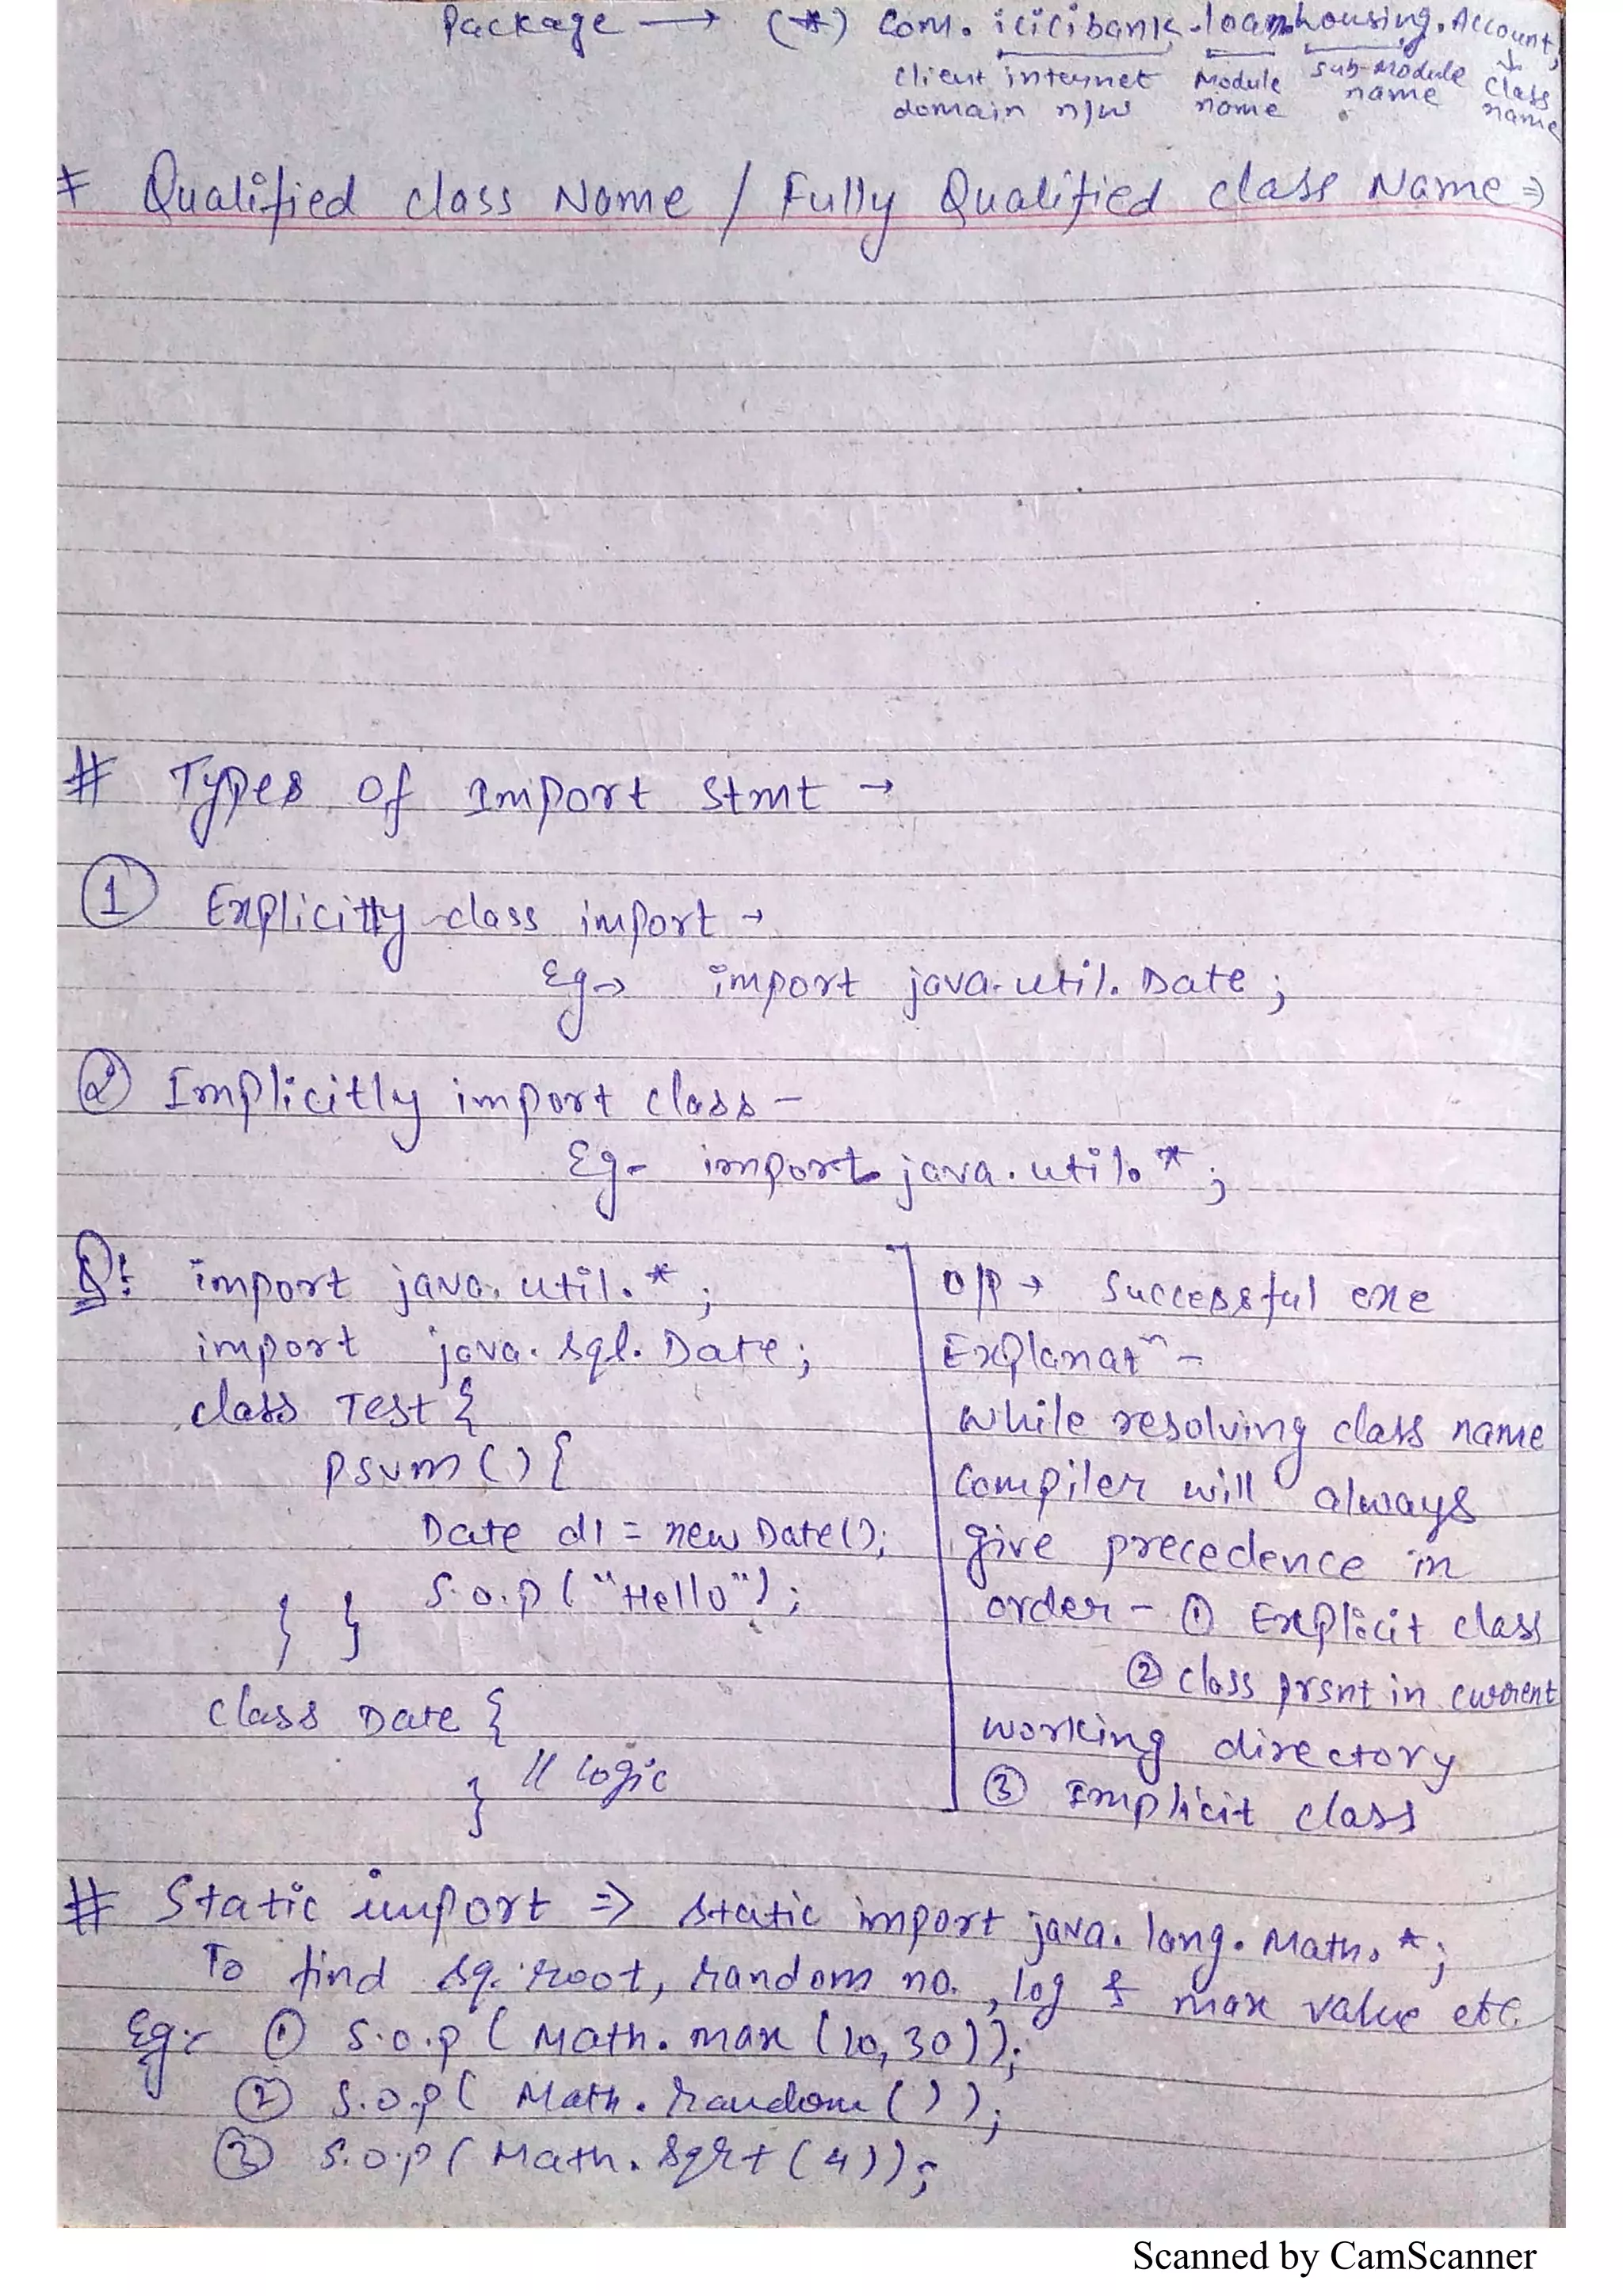 Package → (*) Com. icicibank.loan.housing.Account;
client internet domain n/w
Module name
sub-module name
class name
* Qualified class Name / Fully Qualified class Name ⇒
# Types of Import Stmt →
① Explicitly class import →
Eg→ import java.util.Date;
② Implicitly import class –
Eg- import java.util.*;
Q: import java.util.*;
import java.sql.Date;
class Test {
psvm () {
Date d1 = new Date();
S.o.p ("Hello");
} }
class Date {
// logic
}
O/P → Successful exe
Explanatⁿ –
while resolving class name
Compiler will always
give precedence in
order – ① Explicit class
② class prsnt in current
working directory
③ Implicit class
# Static import ⇒ static import java.lang.Math.*;
To find sq. root, random no., log & max value etc.
Eg:- ① S.o.p ( Math.max (10,30));
② S.o.p ( Math.random());
③ S.o.p ( Math.sqrt (4));
Scanned by CamScanner